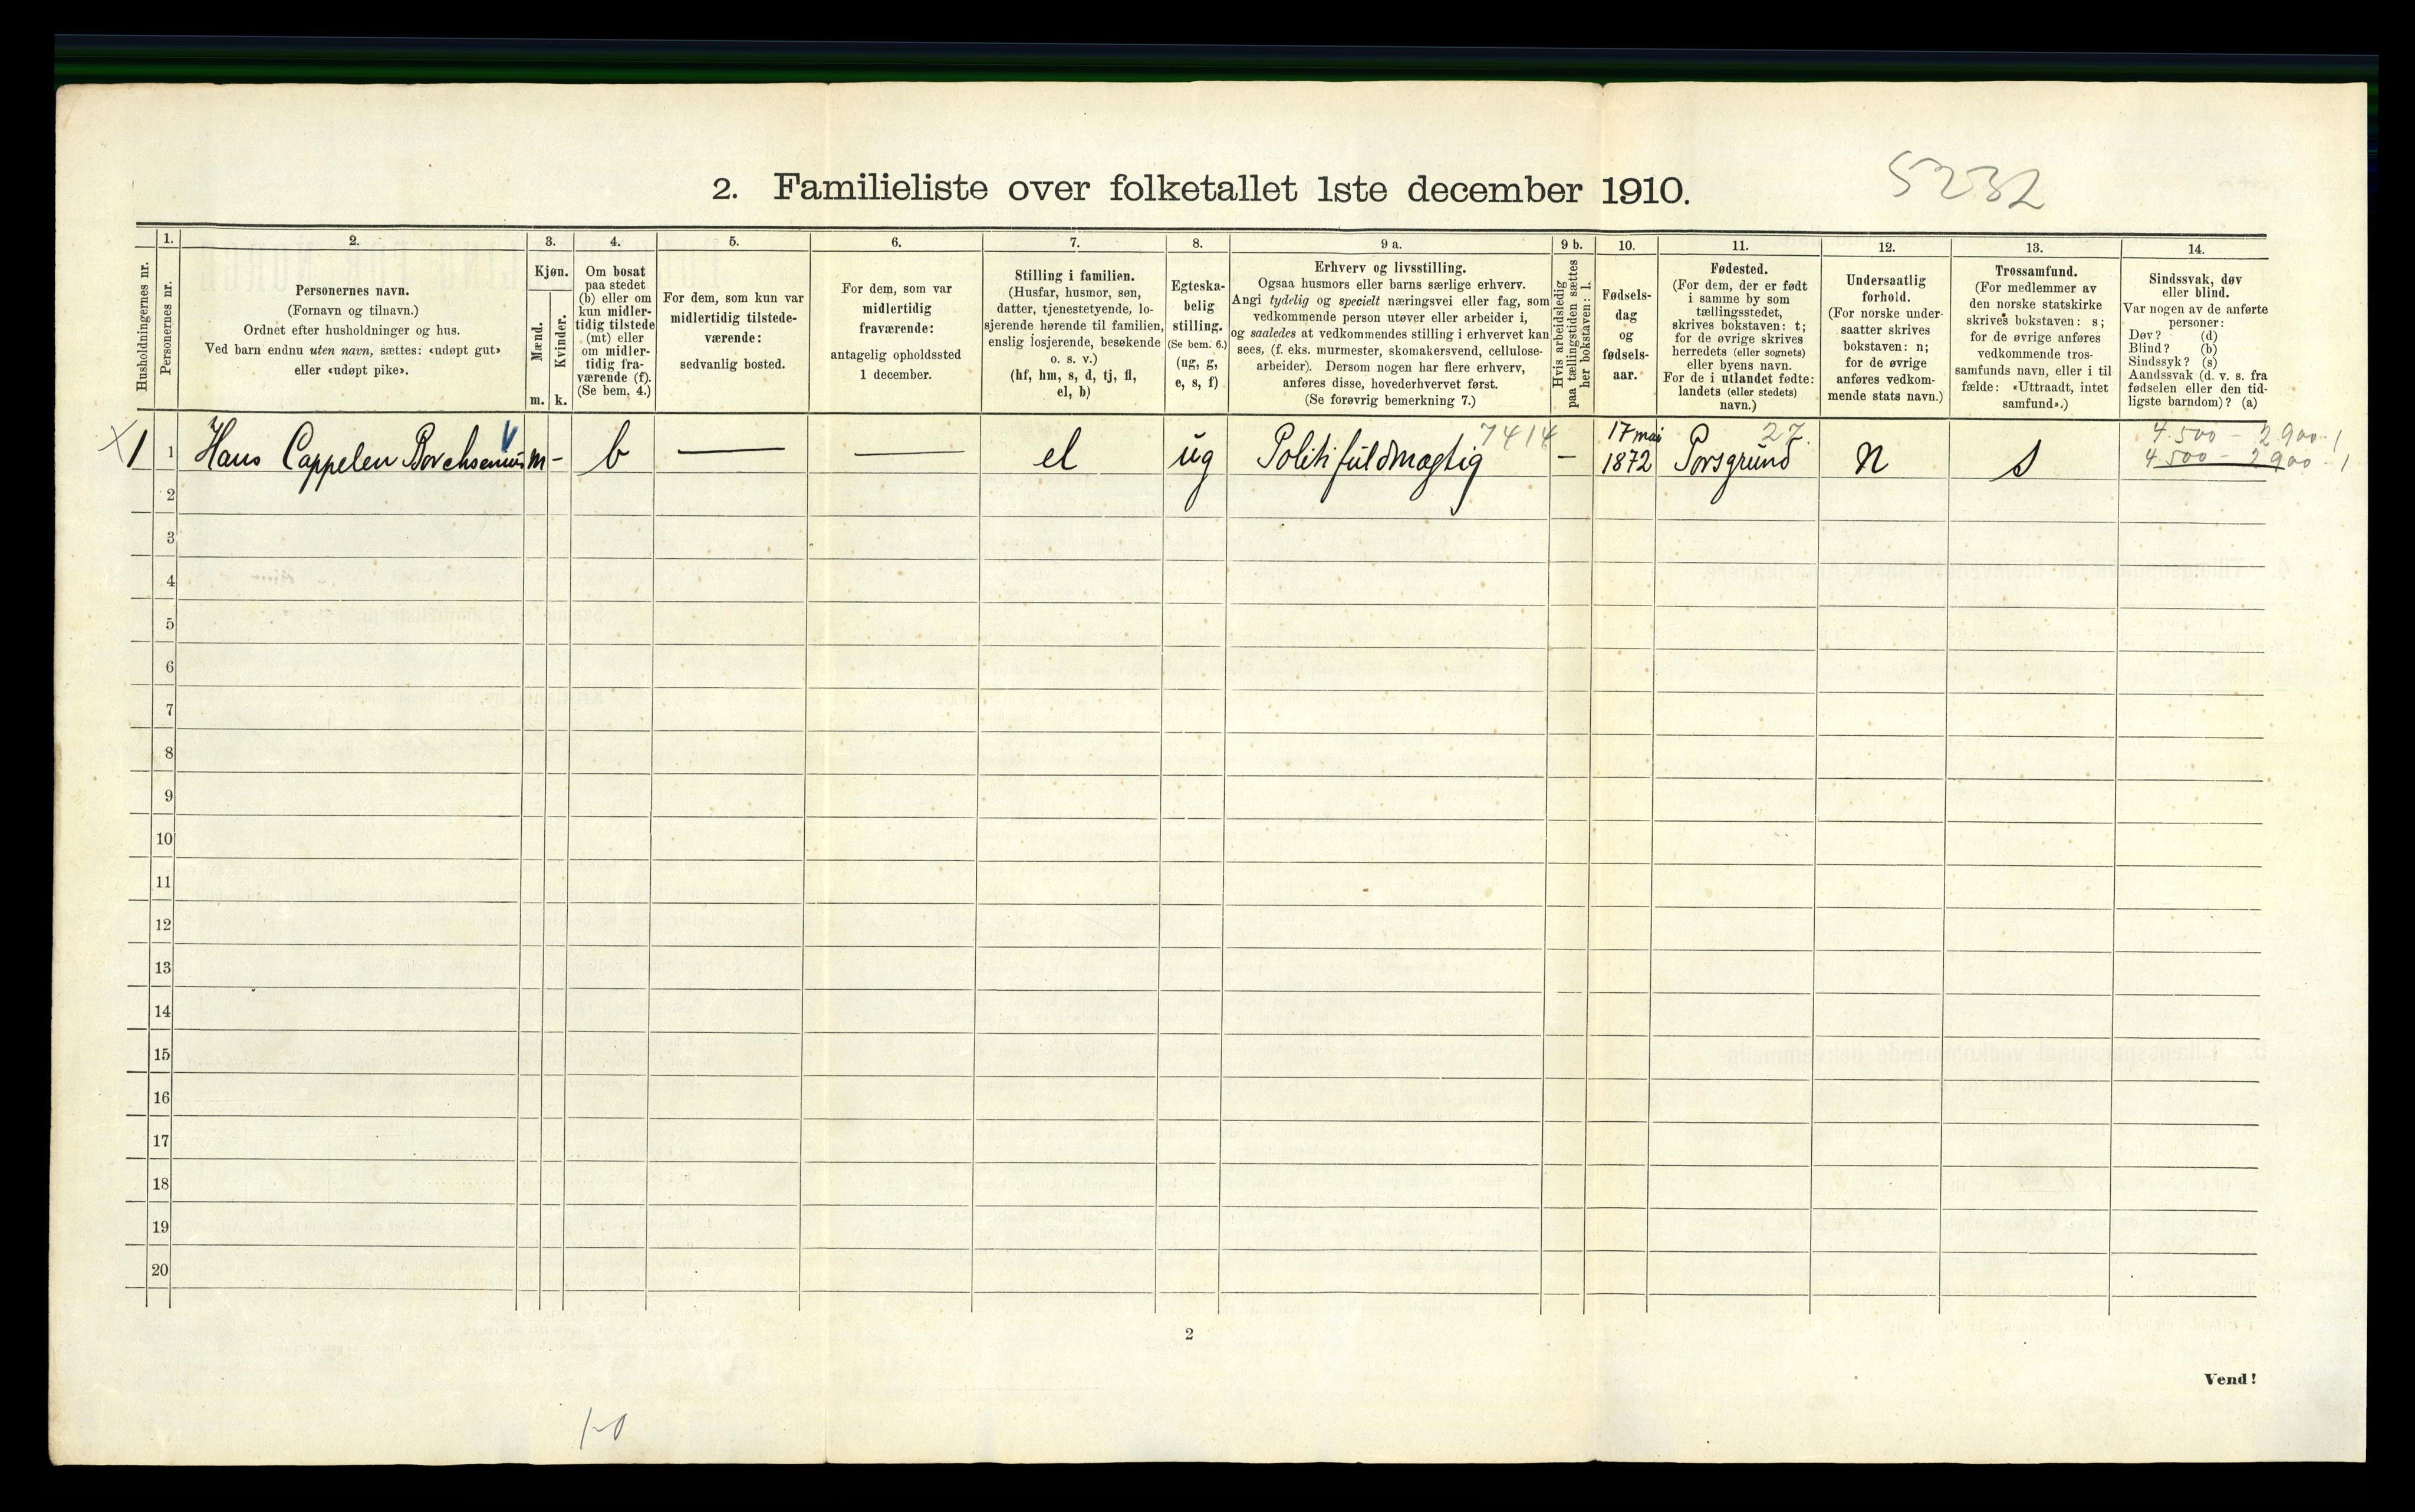 5232
2. Familieliste over folketallet 1ste december 1910.
Husholdningernes nr.
1.
Personernes nr.
2.
Personernes navn.
(Fornavn og tilnavn.)
Ordnet efter husholdninger og hus.
Ved barn endnu uten navn, sættes: «udøpt gut»
eller «udøpt pike».
3.
Kjøn.
Mænd.
m.
Kvinder.
k.
4.
Om bosat
paa stedet
(b) eller om
kun midler-
tidig tilstede
(mt) eller
om midler-
tidig fra-
værende (f).
(Se bem. 4.)
5.
For dem, som kun var
midlertidig tilstede-
værende:
sedvanlig bosted.
6.
For dem, som var
midlertidig
fraværende:
antagelig opholdssted
1 december.
7.
Stilling i familien.
(Husfar, husmor, søn,
datter, tjenestetyende, lo-
sjerende hørende til familien,
enslig losjerende, besøkende
o. s. v.)
(hf, hm, s, d, tj, fl,
el, b)
8.
Egteska-
belig
stilling.
(Se bem. 6.)
(ug, g,
e, s, f)
9 a.
Erhverv og livsstilling.
Ogsaa husmors eller barns særlige erhverv.
Angi tydelig og specielt næringsvei eller fag, som
vedkommende person utøver eller arbeider i,
og saaledes at vedkommendes stilling i erhvervet kan
sees, (f. eks. murmester, skomakersvend, cellulose-
arbeider). Dersom nogen har flere erhverv,
anføres disse, hovederhvervet først.
(Se forøvrig bemerkning 7.)
9 b.
Hvis arbeidsledig
paa tællingstiden sættes
her bokstaven: l.
10.
Fødsels-
dag
og
fødsels-
aar.
11.
Fødested.
(For dem, der er født
i samme by som
tællingsstedet,
skrives bokstaven: t;
for de øvrige skrives
herredets (eller sognets)
eller byens navn.
For de i utlandet fødte:
landets (eller stedets)
navn.)
12.
Undersaatlig
forhold.
(For norske under-
saatter skrives
bokstaven: n;
for de øvrige
anføres vedkom-
mende stats navn.)
13.
Trossamfund.
(For medlemmer av
den norske statskirke
skrives bokstaven: s;
for de øvrige anføres
vedkommende tros-
samfunds navn, eller i til
fælde: «Uttraadt, intet
samfund».)
14.
Sindssvak, døv
eller blind.
Var nogen av de anførte
personer:
Døv? (d)
Blind? (b)
Sindssyk? (s)
Aandssvak (d. v. s. fra
fødselen eller den tid-
ligste barndom)? (a)
7414 17 mai 27. 4.500 – 2900. 1
X 1 1 Hans Cappelen Borchsenius m – b — — el ug Politifuldmægtig – 1872 Porsgrund n s 4.500 – 2900. 1
2
3
4
5
6
7
8
9
10
11
12
13
14
15
16
17
18
19
20
2
Vend!
1-0